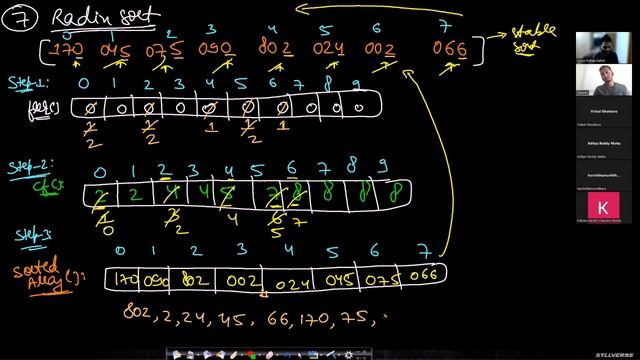 7 Radix sort
0 1 2 3 4 5 6 7
[170 045 075 090 802 024 002 066] → stable sort
Step-1: 0 1 2 3 4 5 6 7 8 9
freq() 0 0 0 0 0 0 0 0 0 0
1 1 1 1 1
2 2 2
Step-2: 0 1 2 3 4 5 6 7 8 9
Cf(): 2 2 4 4 5 7 8 8 8 8
1 3 4 6 7
0 2 5
Step-3: 0 1 2 3 4 5 6 7
Sorted Array(): 170 090 802 002 024 045 075 066
802, 2, 24, 45, 66, 170, 75, .
K
SYLLVERSE